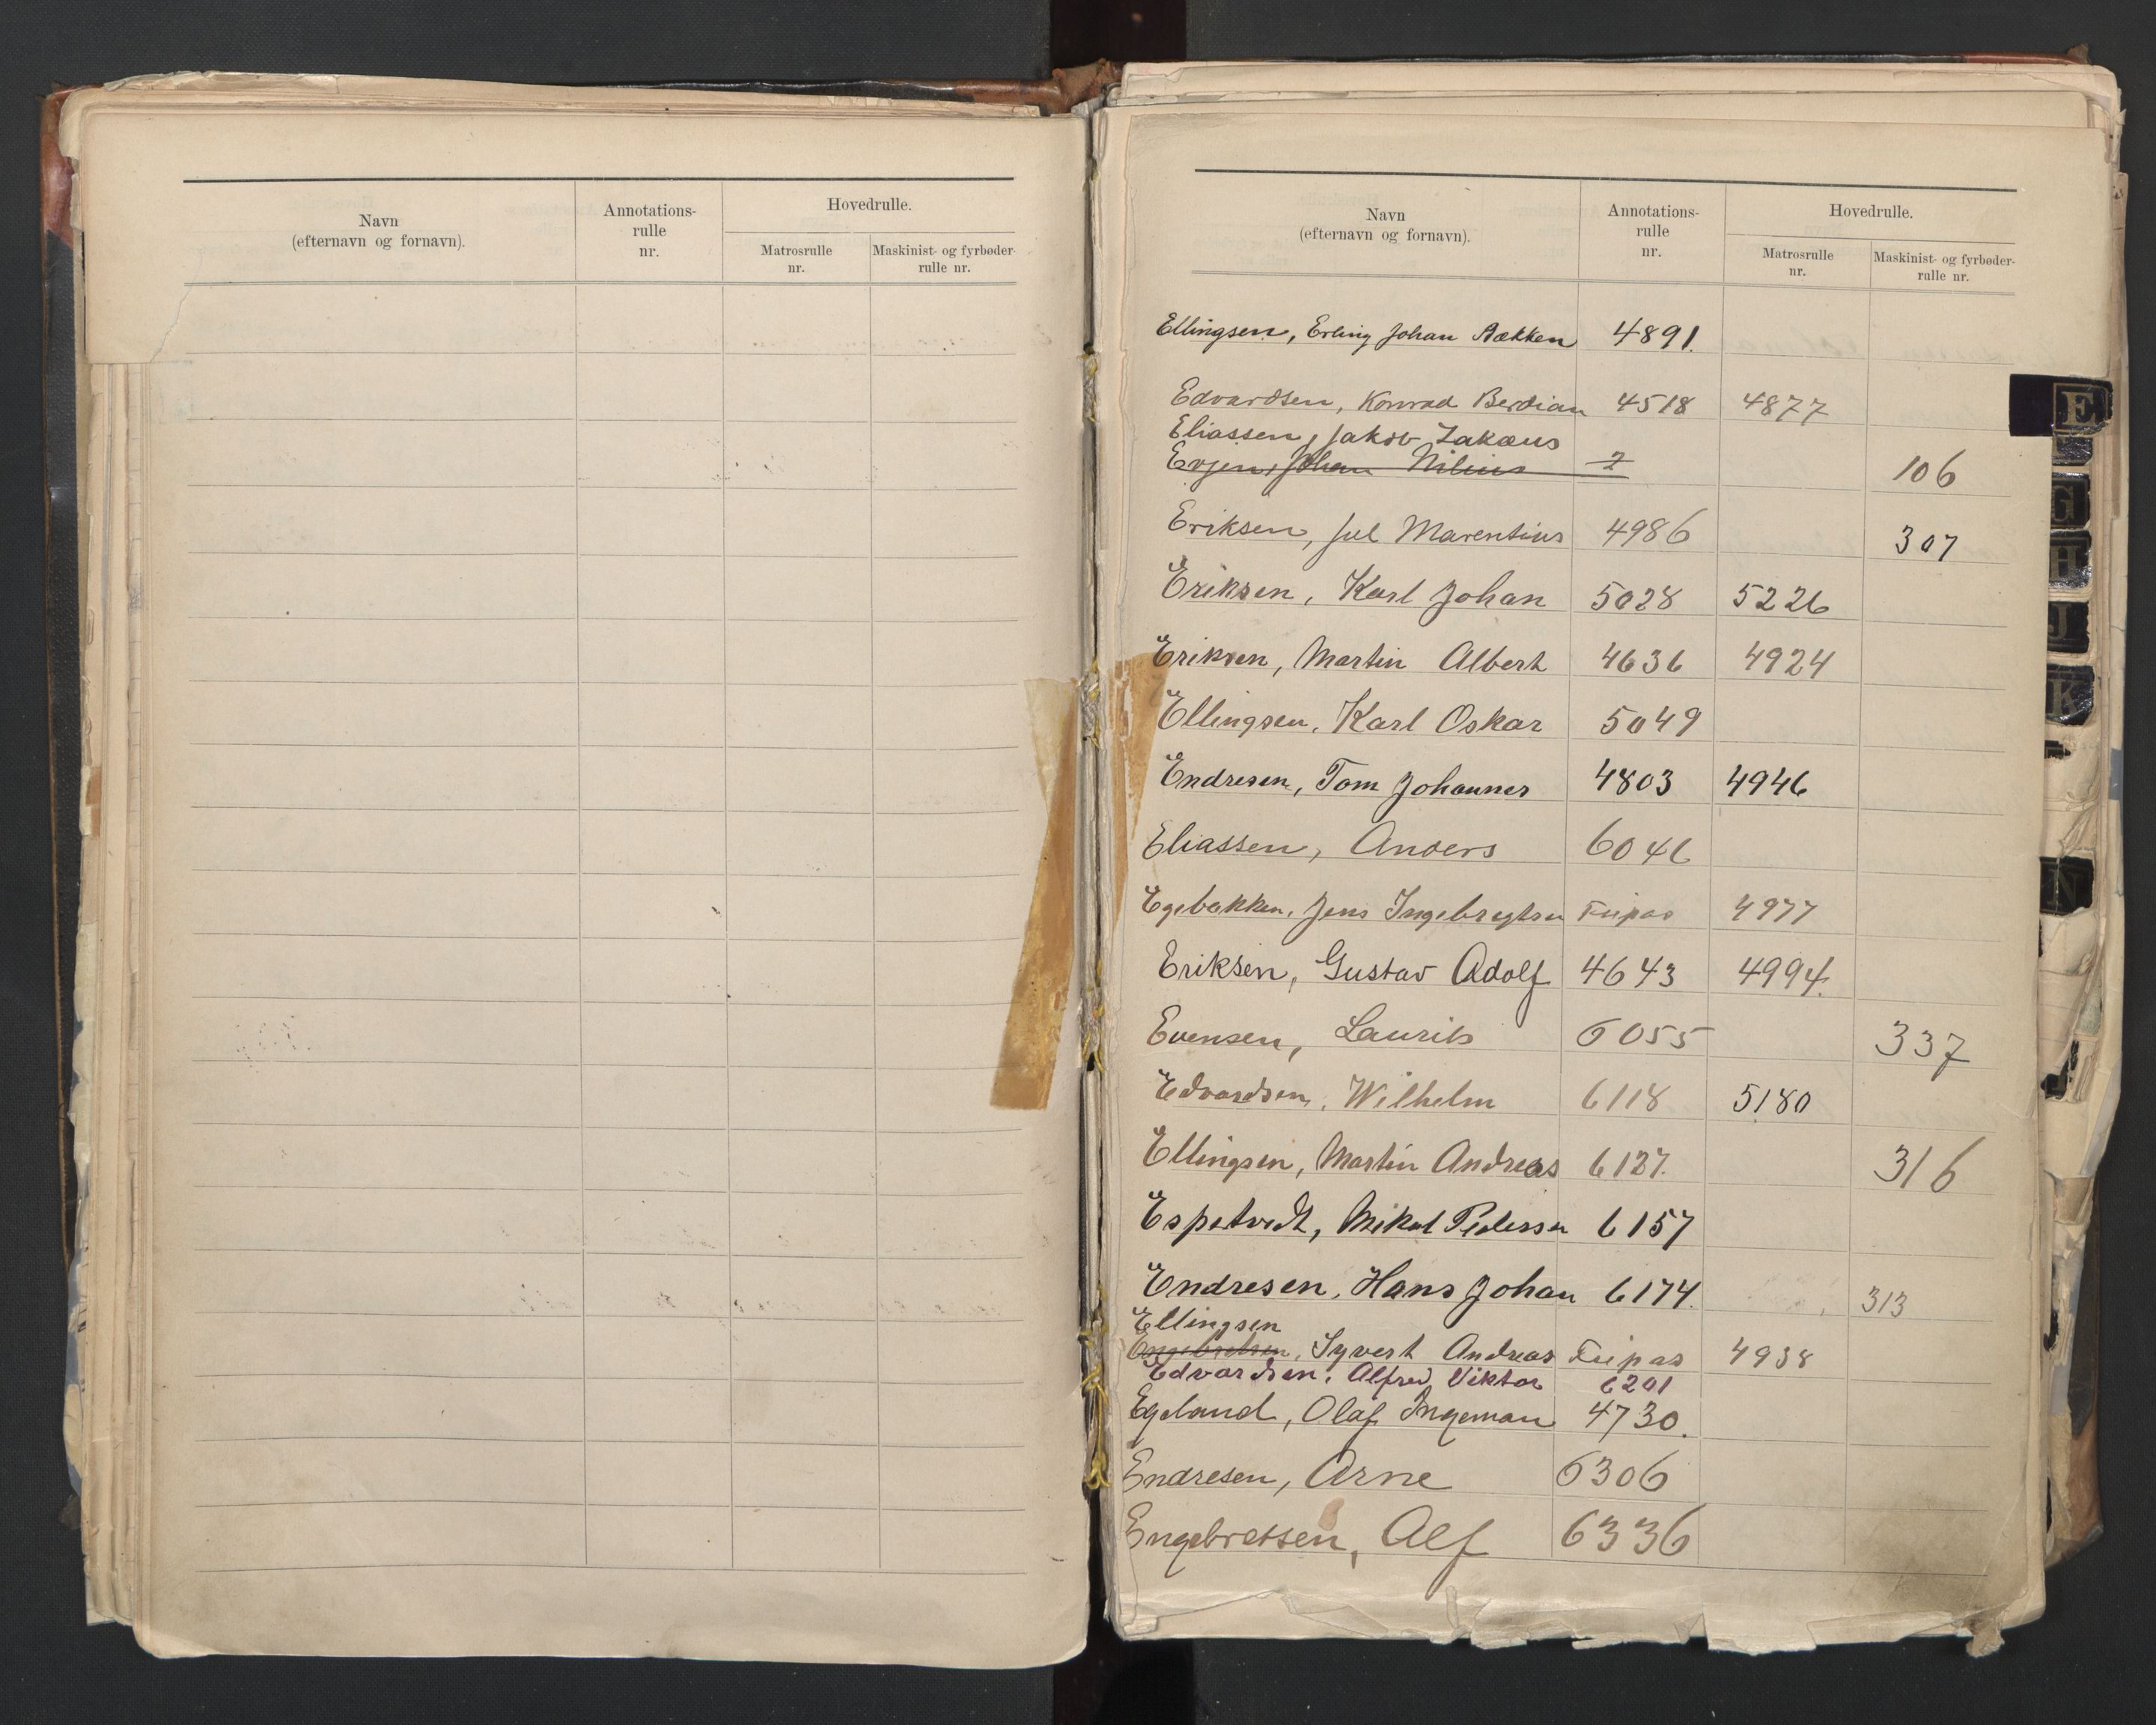 Navn
(efternavn og fornavn).
Annotations-
rulle
nr.
Hovedrulle.
Matrosrulle
nr.
Maskinist- og fyrbøder-
rulle nr.
Navn
(efternavn og fornavn).
Annotations-
rulle
nr.
Hovedrulle.
Matrosrulle
nr.
Maskinist- og fyrbøder-
rulle nr.
Ellingsen, Erling Johan Aakken 4891.
Edvardsen, Konrad Berdian 4518 4877
Eliassen, Jakob Zakæus
Evjen, Johan Nilius 2 106
Eriksen, Jul Marentius 4986 307
Eriksen, Karl Johan 5028 5226
Eriksen, Martin Albert 4636 4924
Ellingsen, Karl Oskar 5049
Endresen, Tom Johannes 4803 4946
Eliassen, Anders 6046
Egebakken, Jens Ingebregtsen 4977
Eriksen, Gustav Adolf 4643 4994.
Evensen, Laurits 6055 337
Edvardsen, Wilhelm 6118 5180
Ellingsen, Martin Andreas 6127. 316
Espetvedt, Mikal Pedersen 6157
Endresen, Hans Johan 6174. 313
Ellingsen
Engebretsen, Syvert Andreas 4938
Edvardsen, Alfred Viktor 6201
Egeland, Olaf Ingeman 4730.
Endresen, Arne 6306
Engebretsen, Alf 6336
E
G
H
J
K
N